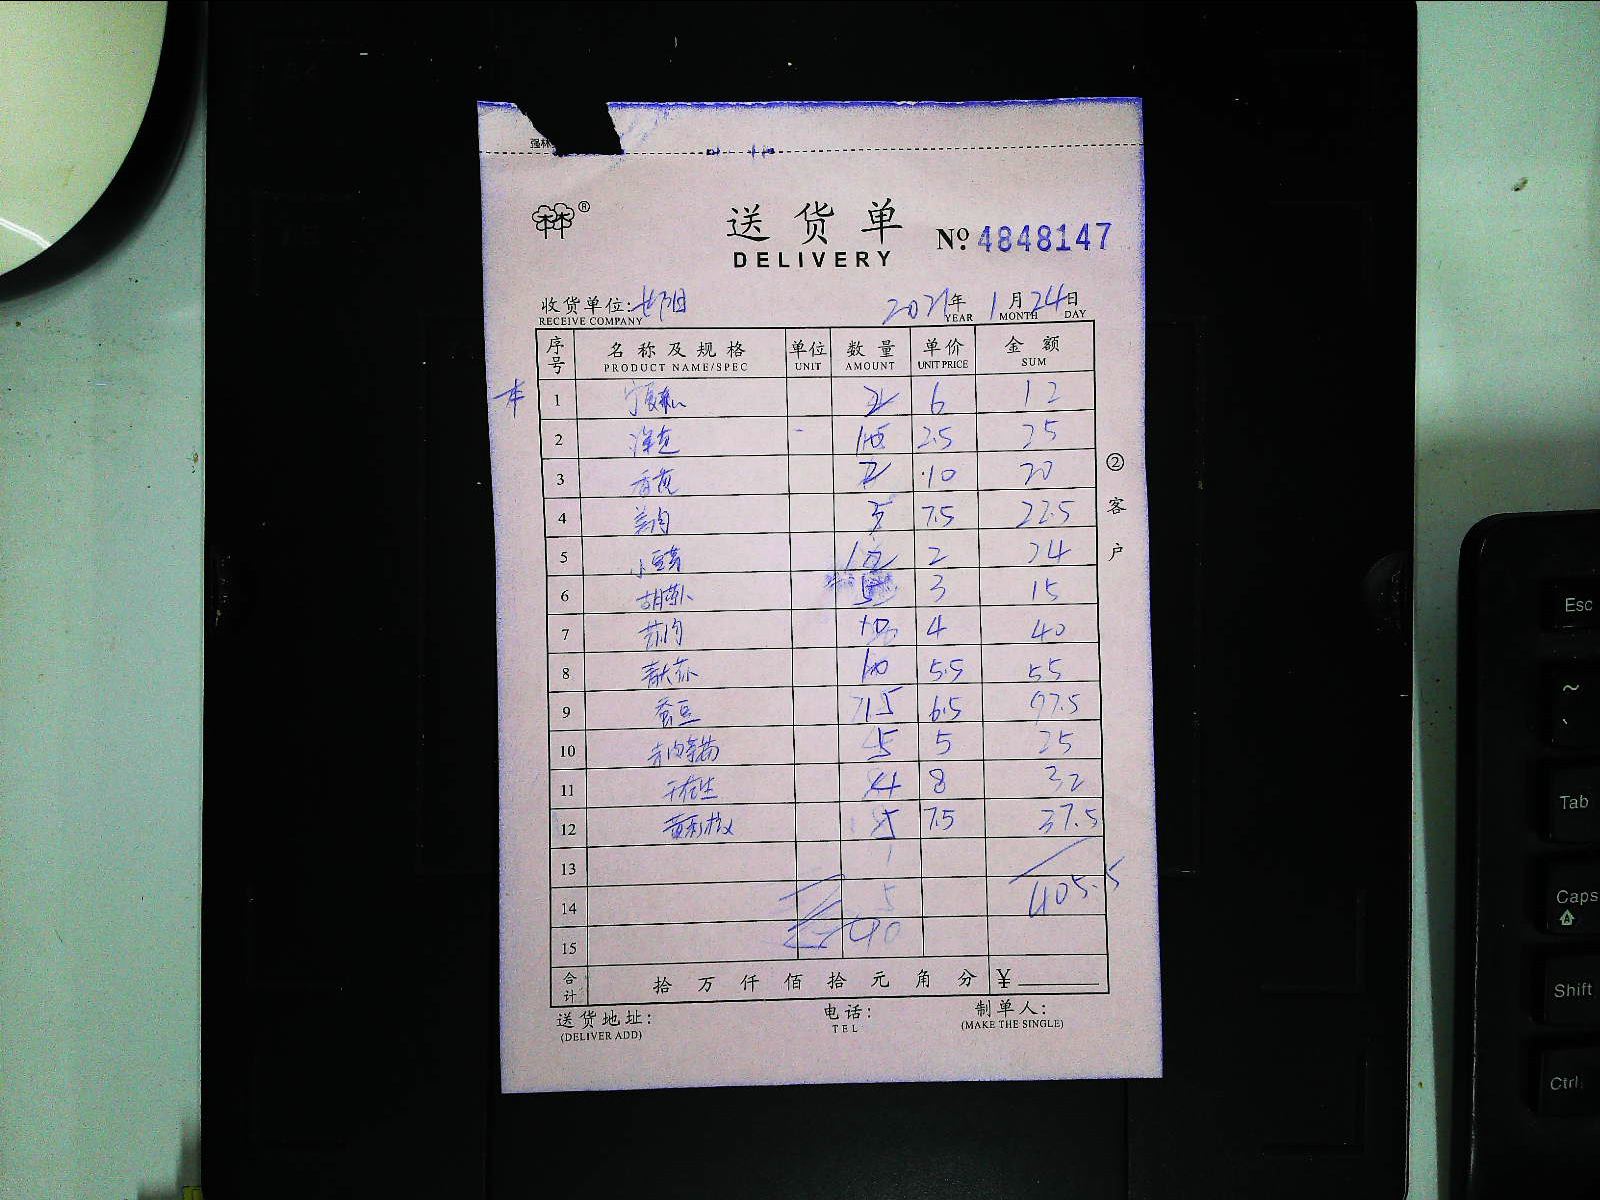 送货单
№ 4848147
DELIVERY
收货单位: 2021年 1月24日
RECEIVE COMPANY YEAR MONTH DAY
序号 名称及规格 单位 数量 单价 金额
PRODUCT NAME/SPEC UNIT AMOUNT UNIT PRICE SUM
1 2 6 12
2 洋芋 10 2.5 25
3 香菇 2 10 20
4 3 7.5 22.5
5 12 2 24
6 胡萝卜 5 3 15
7 10 4 40
8 10 5.5 55
9 蚕豆 15 6.5 97.5
10 5 5 25
11 干花生 4 8 32
12 5 7.5 37.5
13
14 405.5
15
合计 拾 万 仟 佰 拾 元 角 分 ¥
送货地址: 电话: 制单人:
(DELIVER ADD) TEL (MAKE THE SINGLE)
② 客户
Esc
~
`
Tab
Caps
Shift
Ctrl